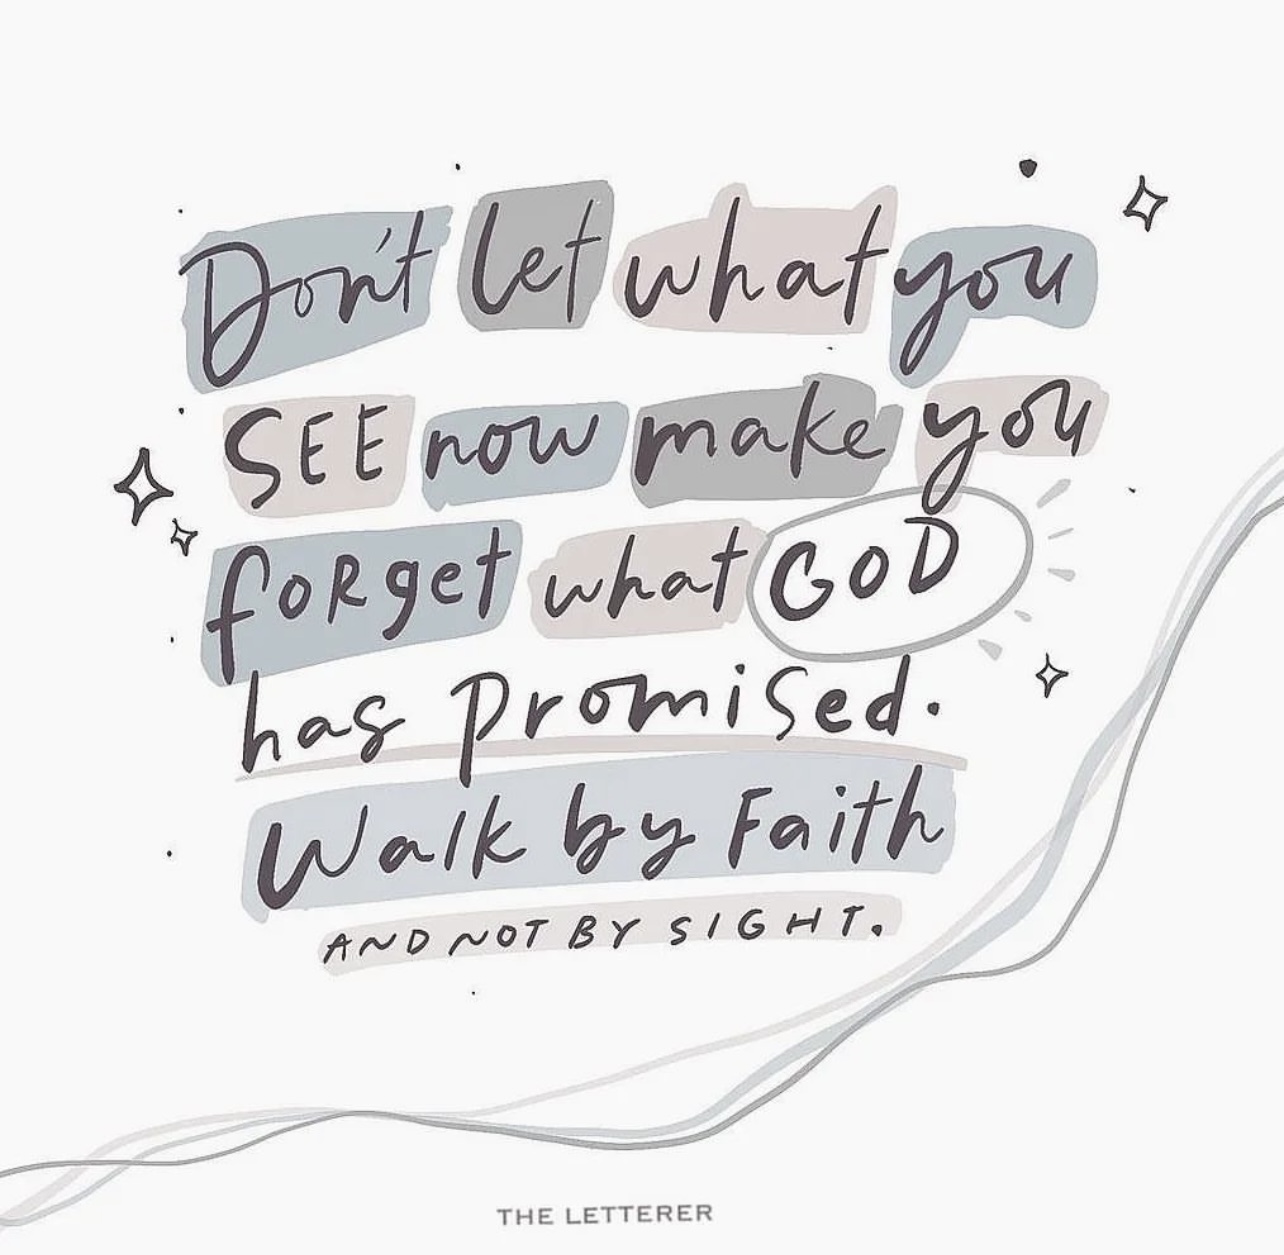 Don't let what you
SEE now make you
foRget what GOD
has promised.
Walk by Faith
AND NOT BY SIGHT.
THE LETTERER